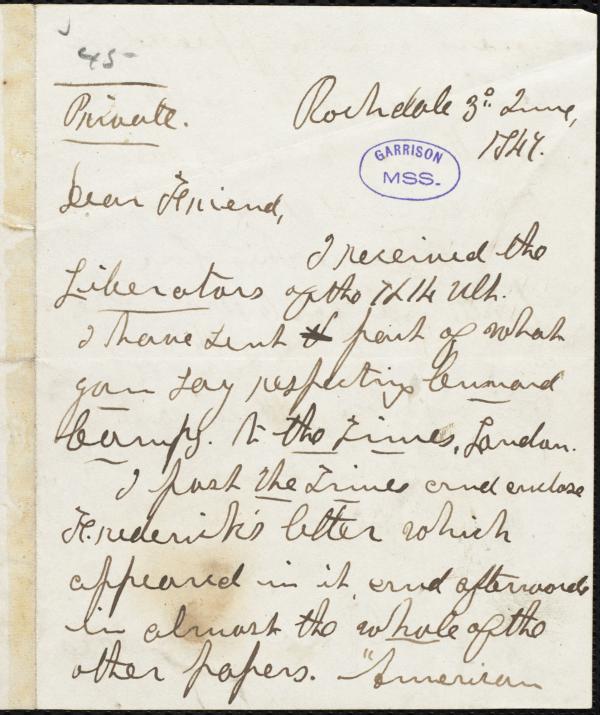 45-
Private.
Rochdale 3d June,
1847.
GARRISON
MSS.
Dear Friend,
I received the
Liberators of the 7 & 14 Ult.
I have sent part of what
you say respecting Cunard
Compy. to the Times, London.
I post the Times and enclose
Frederick's letter which
appeared in it and afterwards
in almost the whole of the
other papers. "American